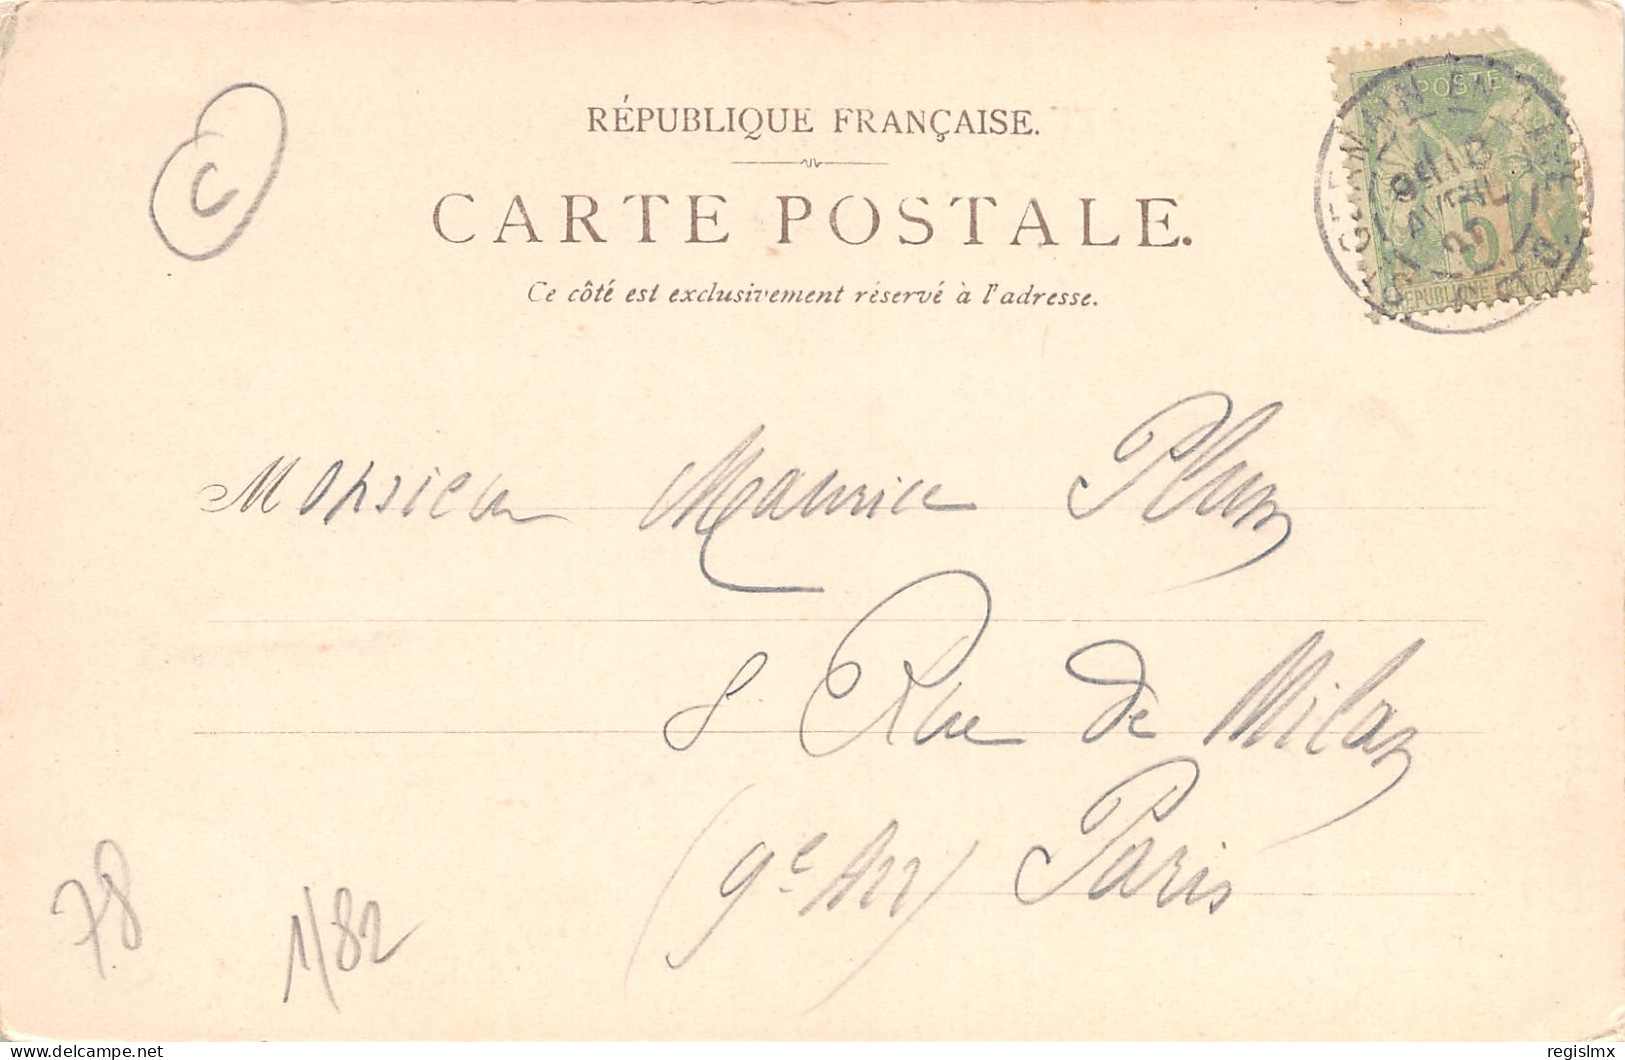 C
RÉPUBLIQUE FRANÇAISE.
CARTE POSTALE.
Ce côté est exclusivement réservé à l'adresse.
POSTE
5
RÉPUBLIQUE FRANÇAISE
ST GERMAIN EN LAYE
AVRIL
Monsieur Maurice
8 Rue de Milan
(9e Arr) Paris
78
1/82
delcampe.net
regislmx